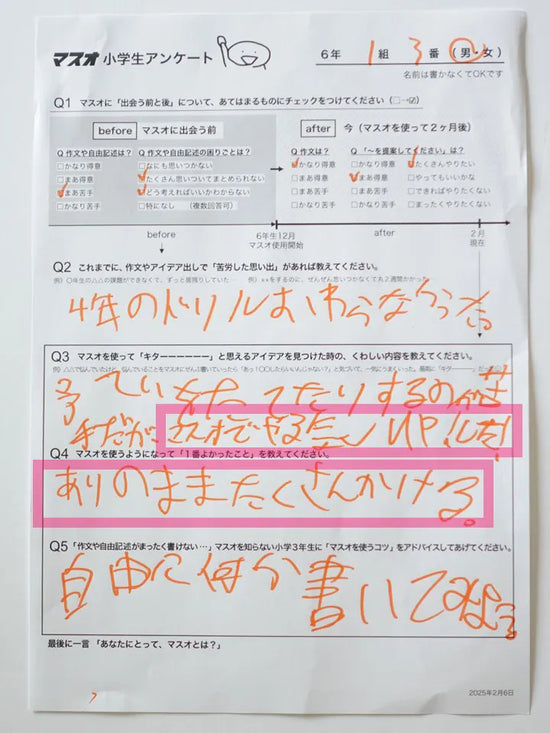 マスオ 小学生アンケート
6年 1組 3番 (男・女)
名前は書かなくてOKです
Q1 マスオに「出会う前と後」について、あてはまるものにチェックをつけてください(□→☑)
before マスオに出会う前
after 今(マスオを使って2ヶ月後)
Q 作文や自由記述は? Q 作文や自由記述の困りごとは?
□かなり得意 □なにも思いつかない
□まあ得意 □たくさん思いついてまとめられない
□まあ苦手 □どう考えればいいかわからない
□かなり苦手 □特になし (複数回答可)
Q 作文は? Q 「〜を提案してください」は?
□かなり得意 □かなり得意 □たくさんやりたい
□まあ得意 □まあ得意 □やってもいいかな
□まあ苦手 □まあ苦手 □できればやりたくない
□かなり苦手 □かなり苦手 □まったくやりたくない
before
6年生12月
マスオ使用開始
after
2月
現在
Q2 これまでに、作文やアイデア出しで「苦労した思い出」があれば教えてください。
4年のドリルおわらなかった。
Q3 マスオを使って「キターーーーーー」と思えるアイデアを見つけた時の、くわしい内容を教えてください。
予ていをたてたりするのが苦
手だが、さくせんでやる気UP!した!
Q4 マスオを使うようになって「1番よかったこと」を教えてください。
ありのままたくさんかける。
Q5 「作文や自由記述がまったく書けない…」マスオを知らない小学3年生に「マスオを使うコツ」をアドバイスしてあげてください。
自由に何か書いてみよう
最後に一言 「あなたにとって、マスオとは?」
2025年2月6日